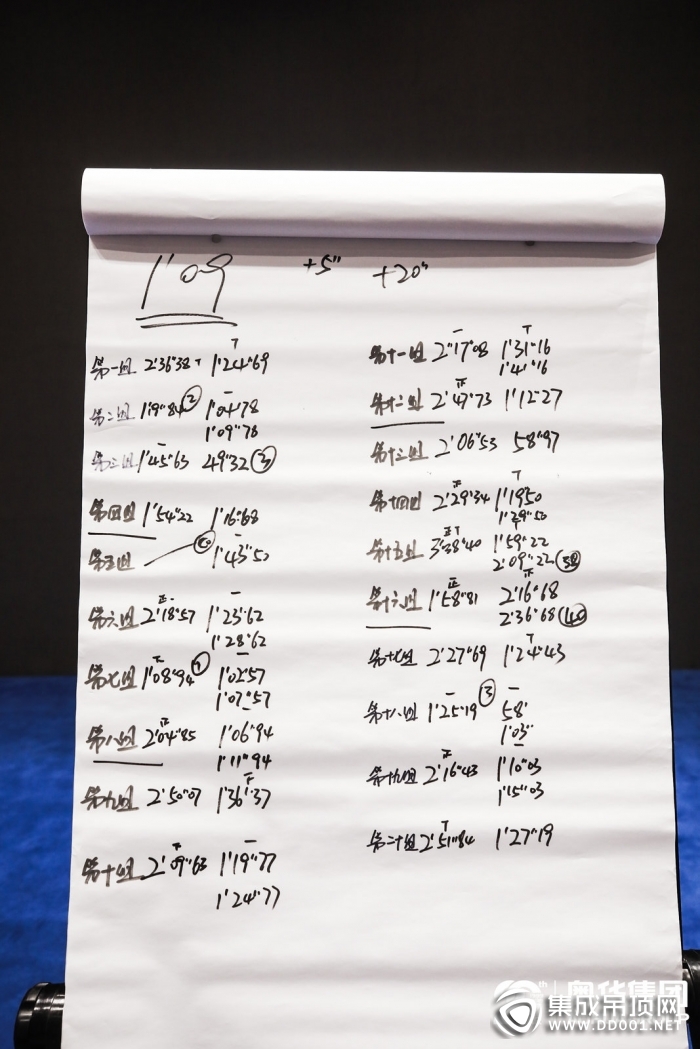 1'09 +5" +20"
第一组 2'36"38 T 1'24"69
第二组 1'19"84 ② 1'04"78
1'09"78
第三组 1'45"63 49"32 ③
第四组 1'54"22 1'16"68
第五组 1'43"52
第六组 2'18"57 1'23"62
1'28"62
第七组 1'08"94 ① 1'02"57
1'07"57
第八组 2'04"85 1'06"94
1'11"94
第九组 2'50"07 1'36"37
第十组 2'09"63 1'19"77
1'24"77
第十一组 2"17"08 1'31"16
1'41"16
第十二组 2'47"73 1'12"27
第十三组 2'06"53 58"97
第十四组 2'29"34 1'19"50
1'29"50
第十五组 3'38"40 1'59"22
2'09"22 38
第十六组 1'58"81 2'16"68
2'36"68 40
第十七组 2'27"69 1'24"43
第十八组 1'25"19 ③ 58'
1'03"
第十九组 2'16"43 1'10"03
1'15"03
第二十组 2'51"84 1'27"19
奥华集团
集成吊顶网
WWW.DD001.NET